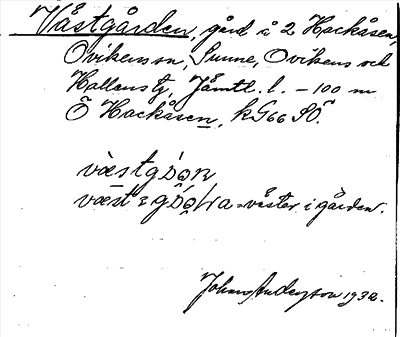 Västgården, gård å 2 Hackåsen,
Ovikens sn, Sunne, Ovikens och
Hallens tg, Jämtl. l. – 100 m
Ö Hackåsen, kG66 SÖ.
västgo̯ɔn
väst i gården.
Johno Anderson 1932.